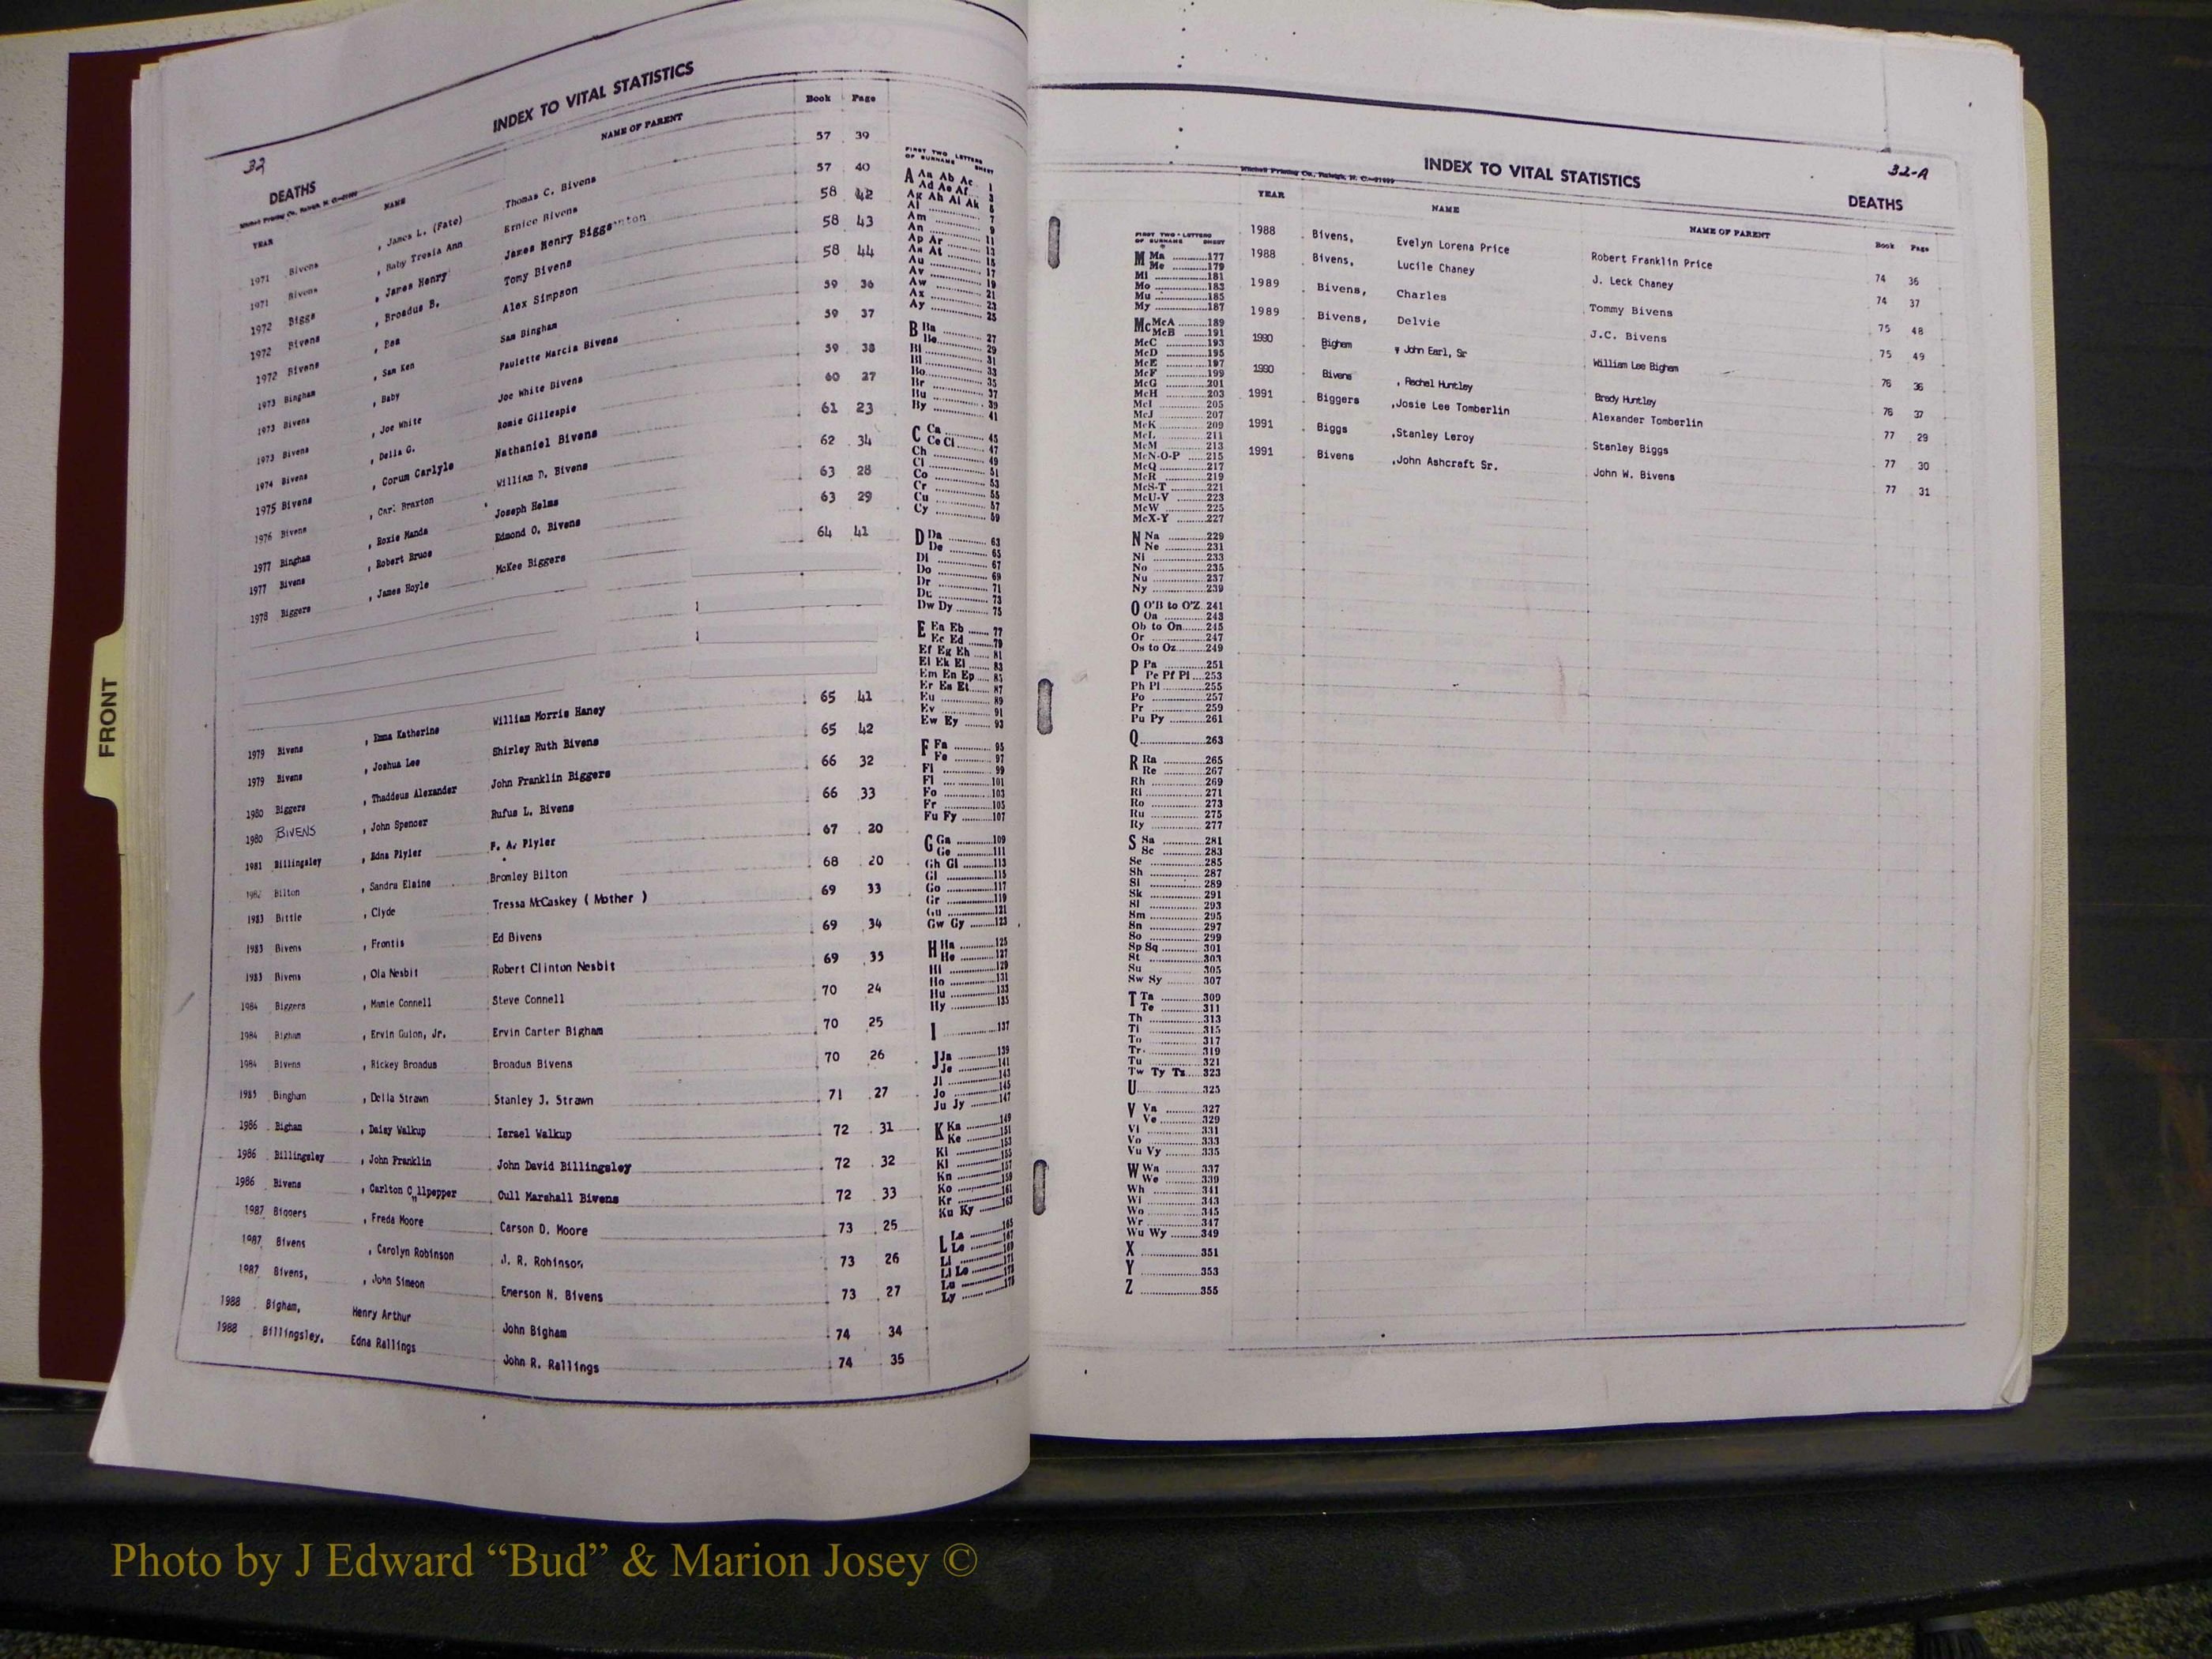 32
INDEX TO VITAL STATISTICS
DEATHS
YEAR NAME NAME OF PARENT Book Page
1971 Bivens , James L. (Fate) Thomas C. Bivens 57 39
1971 Bivens , Baby Tresia Ann Ernice Bivens 57 40
1972 Biggs , James Henry James Henry Biggs 58 42
1972 Bivens , Broadus B. Tomy Bivens 58 43
1972 Bivens , Bea Alex Simpson 58 44
1973 Bingham , Sam Ken Sam Bingham 59 36
1973 Bivens , Baby Paulette Marcia Bivens 59 37
1973 Bivens , Joe White Joe White Bivens 59 38
1974 Bivens , Della G. Romie Gillespie 60 27
1975 Bivens , Corum Carlyle Nathaniel Bivens 61 23
1976 Bivens , Carl Braxton William D. Bivens 62 34
1977 Bingham , Roxie Manda Joseph Helms 63 28
1977 Bivens , Robert Bruce Edmond O. Bivens 63 29
1978 Biggers , James Hoyle McKee Biggers 64 41
1979 Bivens , Emma Katherine William Morris Haney 65 41
1979 Bivens , Joshua Lee Shirley Ruth Bivens 65 42
1980 Biggers , Thaddeus Alexander John Franklin Biggers 66 32
1980 BIVENS , John Spencer Rufus L. Bivens 66 33
1981 Billingsley , Edna Plyler P. A. Plyler 67 20
1982 Bilton , Sandra Elaine Bromley Bilton 68 20
1983 Bittle , Clyde Tressa McCaskey ( Mother ) 69 33
1983 Bivens , Frontis Ed Bivens 69 34
1983 Bivens , Ola Nesbit Robert Clinton Nesbit 69 35
1984 Biggers , Mamie Connell Steve Connell 70 24
1984 Bigham , Ervin Guion, Jr. Ervin Carter Bigham 70 25
1984 Bivens , Rickey Broadus Broadus Bivens 70 26
1985 Bingham , Della Strawn Stanley J. Strawn 71 27
1986 Bigham , Daisy Walkup Israel Walkup 72 31
1986 Billingsley , John Franklin John David Billingsley 72 32
1986 Bivens , Carlton Cullpepper Cull Marshall Bivens 72 33
1987 Biggers , Freda Moore Carson D. Moore 73 25
1987 Bivens , Carolyn Robinson J. R. Robinson 73 26
1987 Bivens, , John Simeon Emerson N. Bivens 73 27
1988 Bigham, Henry Arthur John Bigham 74 34
1988 Billingsley, Edna Rallings John R. Rallings 74 35
FIRST TWO LETTERS
OF SURNAME SHEET
A Aa Ab Ac 1
Ad Ae Af 3
Ag Ah Ai Ak 5
Al 7
Am 9
An 11
Ap Ar 13
As At 15
Au 17
Av 19
Aw 21
Ax 23
Ay 25
B Ba 27
Be 29
Bi 31
Bl 33
Bo 35
Br 37
Bu 39
By 41
C Ca 45
Ce Ci 47
Ch 49
Cl 51
Co 53
Cr 55
Cu 57
Cy 59
D Da 63
De 65
Di 67
Do 69
Dr 71
Du 73
Dw Dy 75
E Ea Eb 77
Ec Ed 79
Ef Eg Eh 81
Ei Ek El 83
Em En Ep 85
Er Es Et 87
Eu 89
Ev 91
Ew Ey 93
F Fa 95
Fe 97
Fi 99
Fl 101
Fo 103
Fr 105
Fu Fy 107
G Ga 109
Ge 111
Gh Gi 113
Gl 115
Go 117
Gr 119
Gu 121
Gw Gy 123
H Ha 125
He 127
Hi 129
Ho 131
Hu 133
Hy 135
I 137
J Ja 139
Je 141
Ji 143
Jo 145
Ju Jy 147
K Ka 149
Ke 151
Ki 153
Kl 155
Kn 157
Ko 161
Kr 163
Ku Ky
L La 165
Le 167
Li 169
Ll Lo 171
Lu 173
Ly 175
FRONT
32-A
INDEX TO VITAL STATISTICS
DEATHS
YEAR NAME NAME OF PARENT Book Page
1988 Bivens, Evelyn Lorena Price Robert Franklin Price 74 36
1988 Bivens, Lucile Chaney J. Leck Chaney 74 37
1989 Bivens, Charles Tommy Bivens 75 48
1989 Bivens, Delvie J.C. Bivens 75 49
1990 Bigham , John Earl, Sr William Lee Bigham 76 36
1990 Bivens , Rachel Huntley Brady Huntley 76 37
1991 Biggers ,Josie Lee Tomberlin Alexander Tomberlin 77 29
1991 Biggs ,Stanley Leroy Stanley Biggs 77 30
1991 Bivens ,John Ashcraft Sr. John W. Bivens 77 31
FIRST TWO LETTERS
OF SURNAME SHEET
M Ma 177
Me 179
Mi 181
Mo 183
Mu 185
My 187
Mc McA 189
McB 191
McC 193
McD 195
McE 197
McF 199
McG 201
McH 203
McI 205
McJ 207
McK 209
McL 211
McM 213
McN-O-P 215
McQ 217
McR 219
McS-T 221
McU-V 223
McW 225
McX-Y 227
N Na 229
Ne 231
Ni 233
No 235
Nu 237
Ny 239
O O'B to O'Z 241
Oa 243
Ob to On 245
Or 247
Os to Oz 249
P Pa 251
Pe Pf Pi 253
Ph Pl 255
Po 257
Pr 259
Pu Py 261
Q 263
R Ra 265
Re 267
Rh 269
Ri 271
Ro 273
Ru 275
Ry 277
S Sa 281
Sc 283
Se 285
Sh 287
Si 289
Sk 291
Sl 293
Sm 295
Sn 297
So 299
Sp Sq 301
St 303
Su 305
Sw Sy 307
T Ta 309
Te 311
Th 313
Ti 315
To 317
Tr 319
Tu 321
Tw Ty Tz 323
U 325
V Va 327
Ve 329
Vi 331
Vo 333
Vu Vy 335
W Wa 337
We 339
Wh 341
Wi 343
Wo 345
Wr 347
Wu Wy 349
X 351
Y 353
Z 355
Photo by J Edward “Bud” & Marion Josey ©